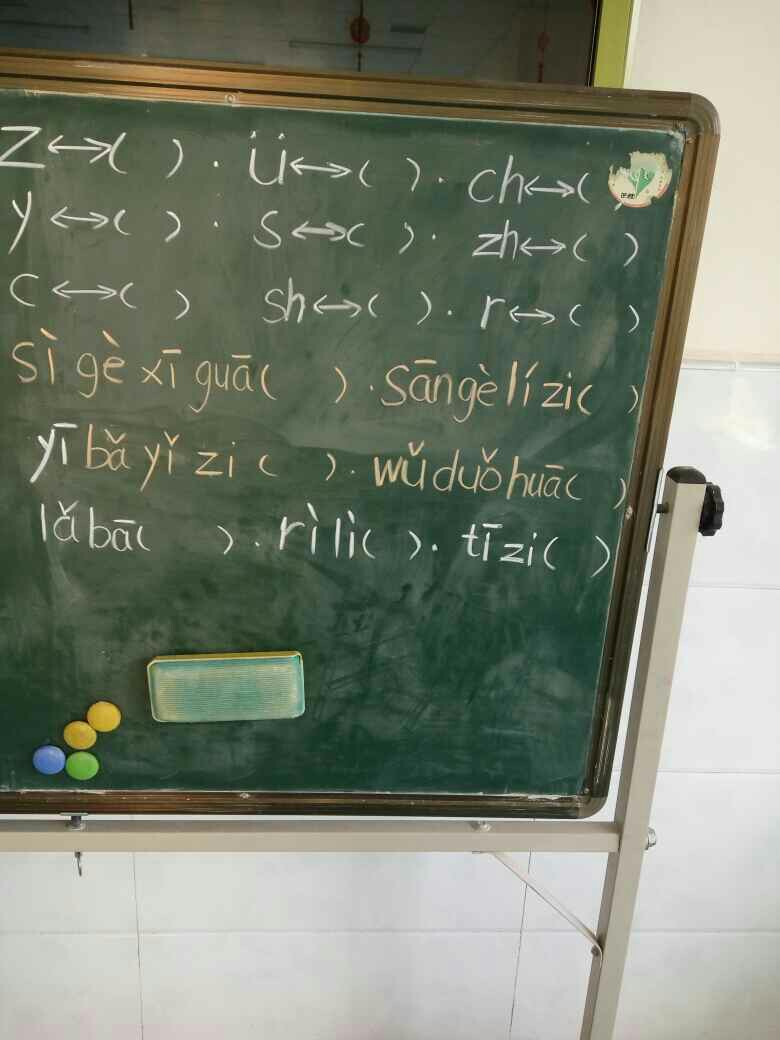 z↔( )·ü↔( )·ch↔(
y↔( )·s↔( )·zh↔( )
c↔( ) sh↔( )·r↔( )
sì gè xī guā( )·sāngèlízi( )
yī bǎ yǐ zi( )·wǔduǒhuā( )
lǎbā( )·rìlì( )·tīzi( )